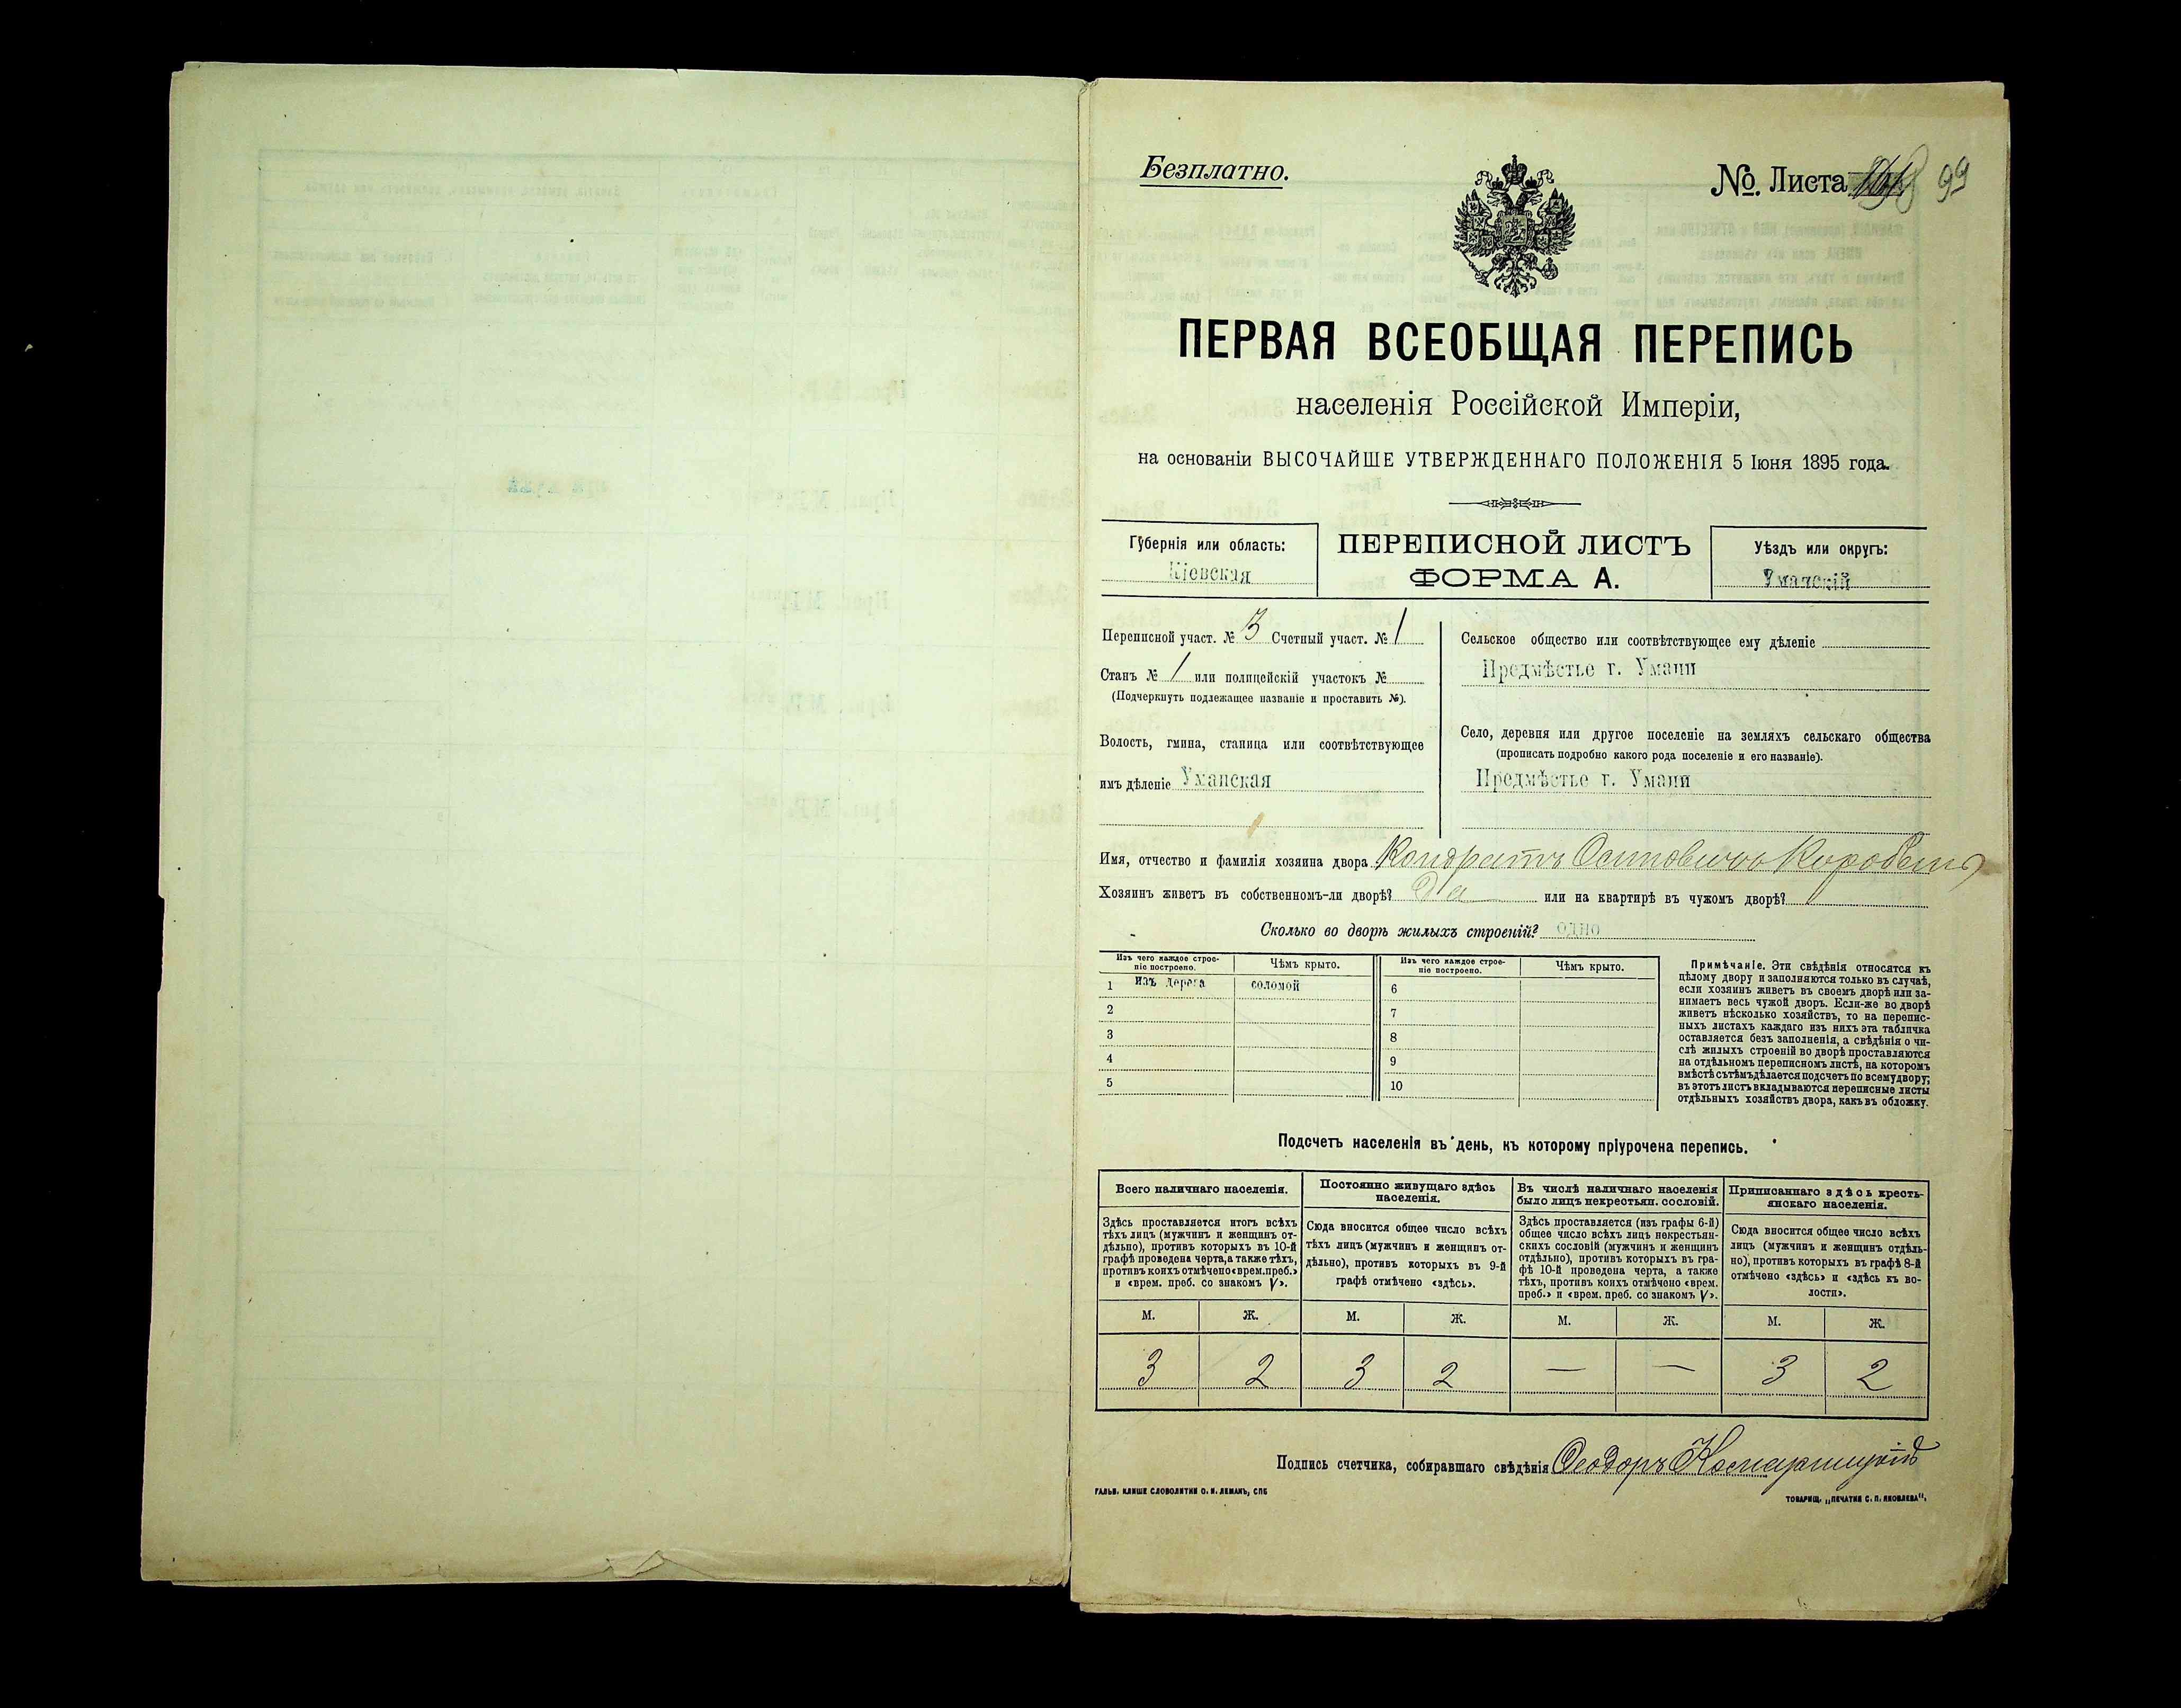 Безплатно.
№. Листа 99
ПЕРВАЯ ВСЕОБЩАЯ ПЕРЕПИСЬ
населенія Россійской Имперіи,
на основаніи ВЫСОЧАЙШЕ УТВЕРЖДЕННАГО ПОЛОЖЕНІЯ 5 Іюня 1895 года.
Губернія или область:
Кіевская
ПЕРЕПИСНОЙ ЛИСТЪ
ФОРМА А.
Уѣздъ или округъ:
Уманскій
Переписной участ. № 3 Счетный участ. № 1
Станъ № 1 или полицейскій участокъ №
(Подчеркнуть подлежащее названіе и проставить №).
Волость, гмина, станица или соотвѣтствующее
имъ дѣленіе Уманская
Сельское общество или соотвѣтствующее ему дѣленіе
Предмѣстье г. Умани
Село, деревня или другое поселеніе на земляхъ сельскаго общества
(прописать подробно какого рода поселеніе и его названіе).
Предмѣстье г. Умани
Имя, отчество и фамилія хозяина двора Кондратъ Осиповичъ
Хозяинъ живетъ въ собственномъ-ли дворѣ? Да или на квартирѣ въ чужомъ дворѣ?
Сколько во дворѣ жилыхъ строеній? одно
Изъ чего каждое строе-
ніе построено.
Чѣмъ крыто.
Изъ чего каждое строе-
ніе построено.
Чѣмъ крыто.
1 изъ дерева соломой 6
2 7
3 8
4 9
5 10
Примѣчаніе. Эти свѣдѣнія относятся къ
цѣлому двору и заполняются только въ случаѣ,
если хозяинъ живетъ въ своемъ дворѣ или за-
нимаетъ весь чужой дворъ. Если-же во дворѣ
живетъ нѣсколько хозяйствъ, то на перепис-
ныхъ листахъ каждаго изъ нихъ эта табличка
оставляется безъ заполненія, а свѣдѣнія о чи-
слѣ жилыхъ строеній во дворѣ проставляются
на отдѣльномъ переписномъ листѣ, на которомъ
вмѣстѣ съ тѣмъ дѣлается подсчетъ по всему двору;
въ этотъ листъ вкладываются переписные листы
отдѣльныхъ хозяйствъ двора, какъ въ обложку.
Подсчетъ населенія въ день, къ которому пріурочена перепись.
Всего наличнаго населенія.
Здѣсь проставляется итогъ всѣхъ
тѣхъ лицъ (мужчинъ и женщинъ от-
дѣльно), противъ которыхъ въ 10-й
графѣ проведена черта, а также тѣхъ,
противъ коихъ отмѣчено «врем. преб.»
и «врем. преб. со знакомъ V».
Постоянно живущаго здѣсь
населенія.
Сюда вносится общее число всѣхъ
тѣхъ лицъ (мужчинъ и женщинъ от-
дѣльно), противъ которыхъ въ 9-й
графѣ отмѣчено «здѣсь».
Въ числѣ наличнаго населенія
было лицъ некрестьян. сословій.
Здѣсь проставляется (изъ графы 6-й)
общее число всѣхъ лицъ некрестьян-
скихъ сословій (мужчинъ и женщинъ
отдѣльно), противъ которыхъ въ гра-
фѣ 10-й проведена черта, а также
тѣхъ, противъ коихъ отмѣчено «врем.
преб.» и «врем. преб. со знакомъ V».
Приписаннаго здѣсь кресть-
янскаго населенія.
Сюда вносится общее число всѣхъ
лицъ (мужчинъ и женщинъ отдѣль-
но), противъ которыхъ въ графѣ 8-й
отмѣчено «здѣсь» и «здѣсь къ во-
лости».
М. Ж. М. Ж. М. Ж. М. Ж.
3 2 3 2 — — 3 2
Подпись счетчика, собиравшаго свѣдѣнія Ѳеодоръ
ГАЛЬВ. КЛИШЕ СЛОВОЛИТНИ О. И. ЛЕМАНЪ, СПБ
ТОВАРИЩ. „ПЕЧАТНЯ С. П. ЯКОВЛЕВА".